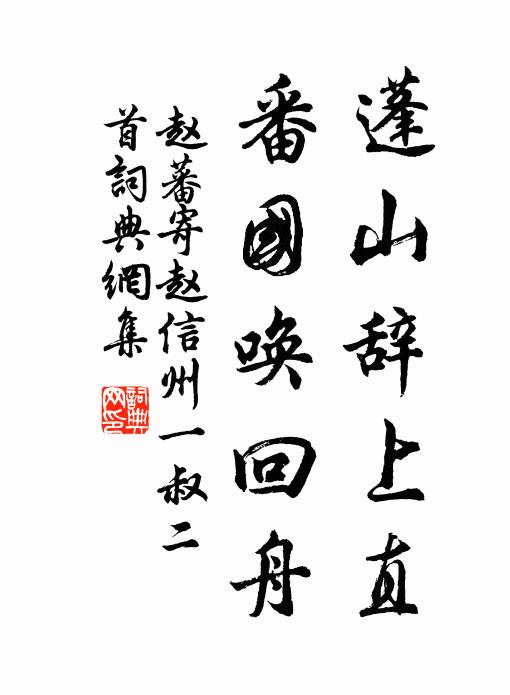 蓬山辞上直
番國喚回舟
赵蕃寄赵信州一叔二
首詞典網集
詞典
网印